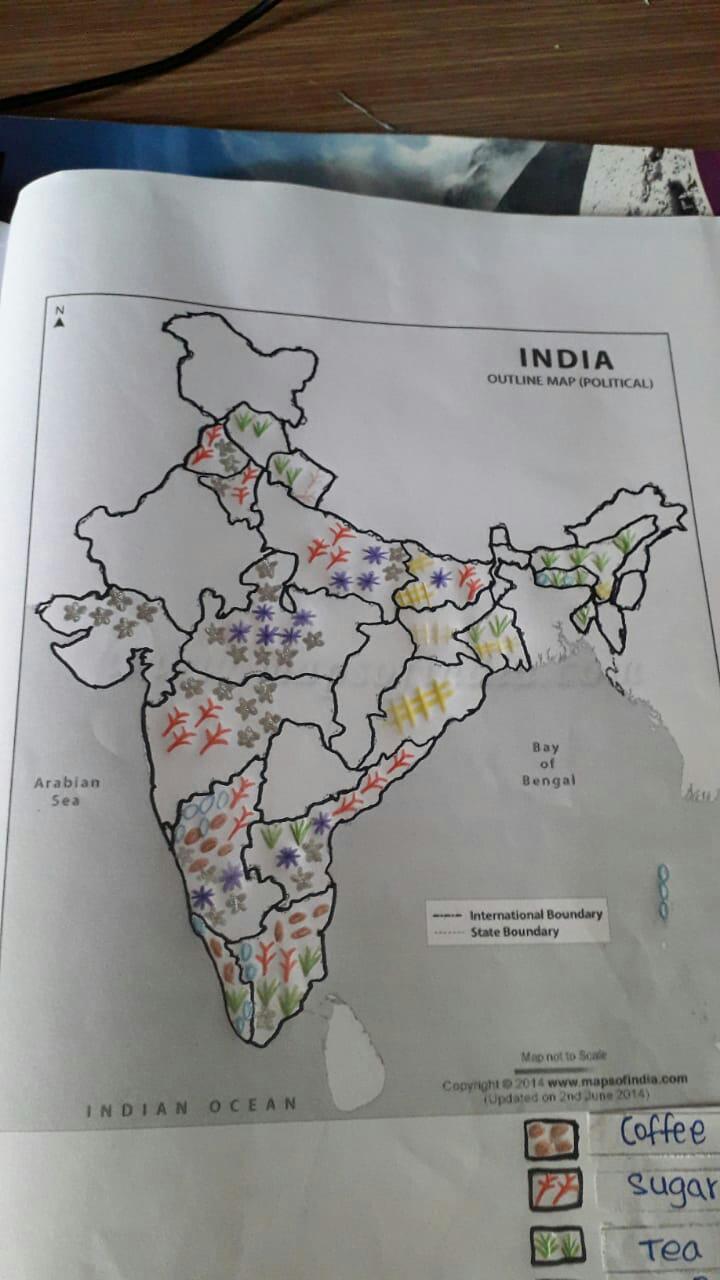 N
INDIA
OUTLINE MAP (POLITICAL)
Arabian
Sea
Bay
of
Bengal
International Boundary
State Boundary
Map not to Scale
Copyright © 2014 www.mapsofindia.com
(Updated on 2nd June 2014)
INDIAN OCEAN
Coffee
Sugar
Tea